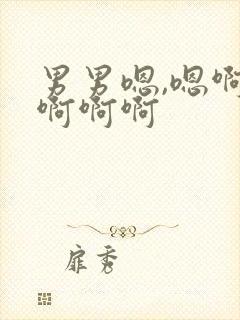 男男嗯,嗯啊
啊啊啊
扉秀